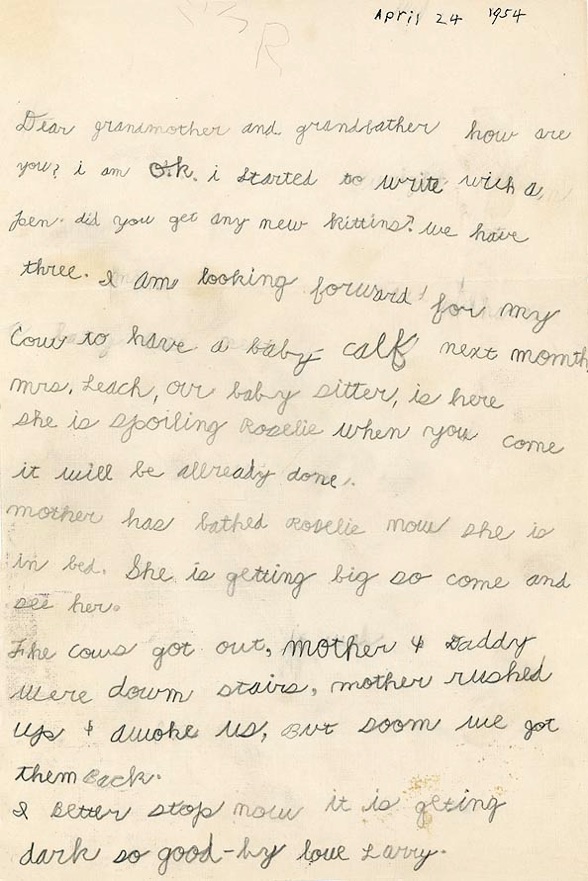 April 24 1954
R
Dear grandmother and grandfather how are
you? i am o.k. i started to write with a
pen. did you get any new kittins? we have
three. I am looking forward for my
Cow to have a baby calf next month
mrs. Leach, our baby sitter, is here
she is spoiling Roselie when you come
it will be allready done.
mother has bathed Roselie now she is
in bed. She is getting big so come and
see her.
The cows got out, mother & Daddy
were down stairs, mother rushed
up & awoke us, But soom we got
them Back.
I Better stop now it is geting
dark so good-by love Larry.